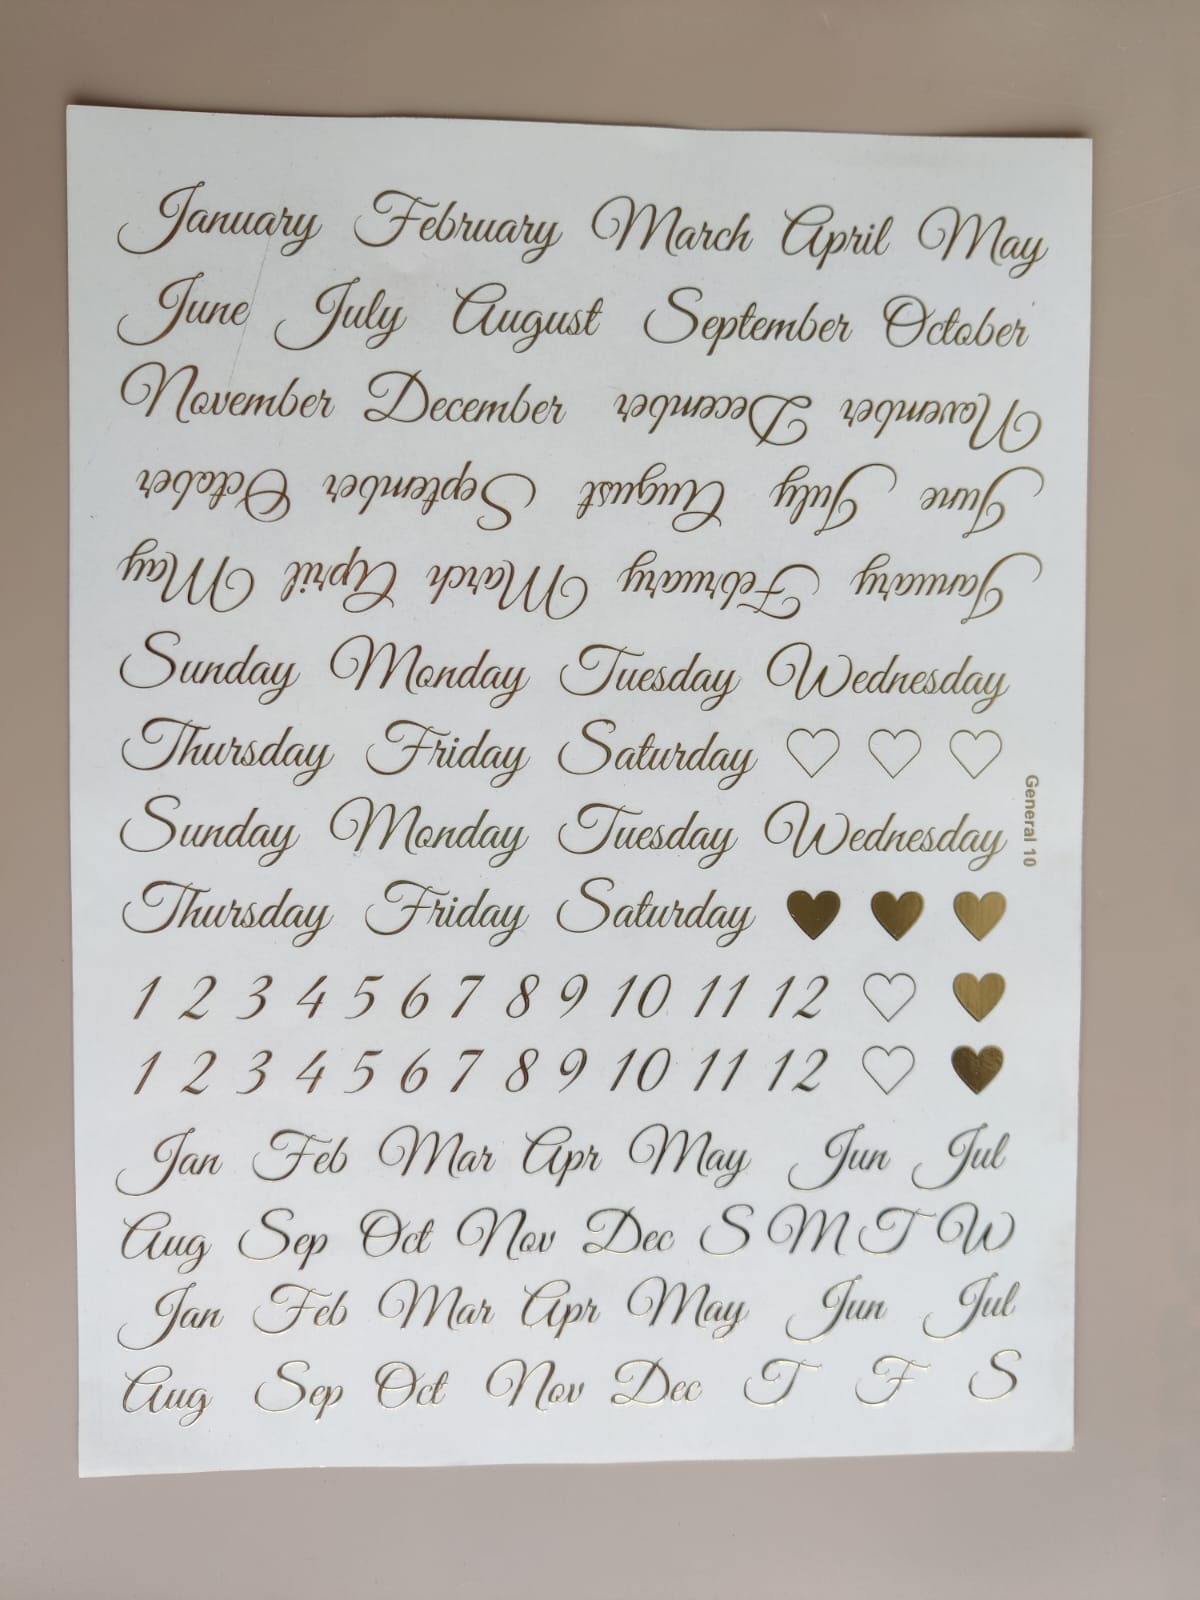 January February March April May
June July August September October
November December December November
October September August July June
May April March February January
Sunday Monday Tuesday Wednesday
Thursday Friday Saturday
Sunday Monday Tuesday Wednesday
Thursday Friday Saturday
General 10
1 2 3 4 5 6 7 8 9 10 11 12
1 2 3 4 5 6 7 8 9 10 11 12
Jan Feb Mar Apr May Jun Jul
Aug Sep Oct Nov Dec S M T W
Jan Feb Mar Apr May Jun Jul
Aug Sep Oct Nov Dec T F S